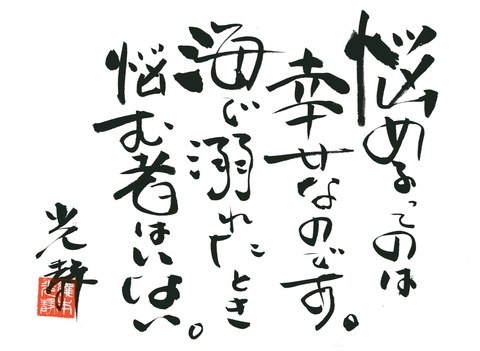 悩めるってのは
幸せなのです。
海で溺れたとき
悩む者はいない。
光静